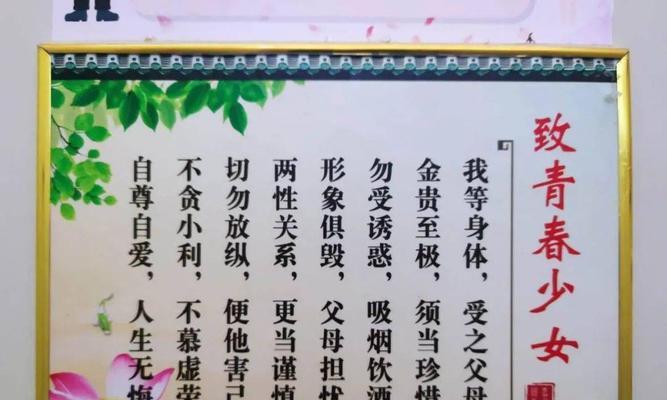 致青春少女
我等身体，受之父母
金贵至极，须当珍惜
勿受诱惑，吸烟饮酒
形象俱毁，父母担忧
两性关系，更当谨慎
切勿放纵，便他害己
不贪小利，不慕虚荣
自尊自爱，人生无悔